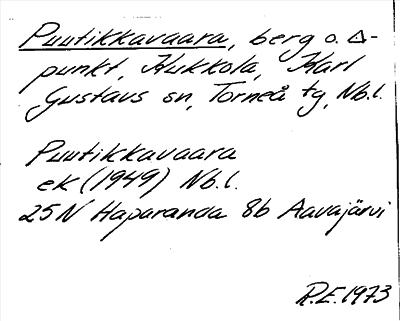 Puutikkavaara, berg o. Δ-
punkt, Kukkola, Karl
Gustavs sn, Torneå tg, Nb.l.
Puutikkavaara
ek (1949) Nb.l.
25N Haparanda 8b Aavajärvi
R.E. 1973